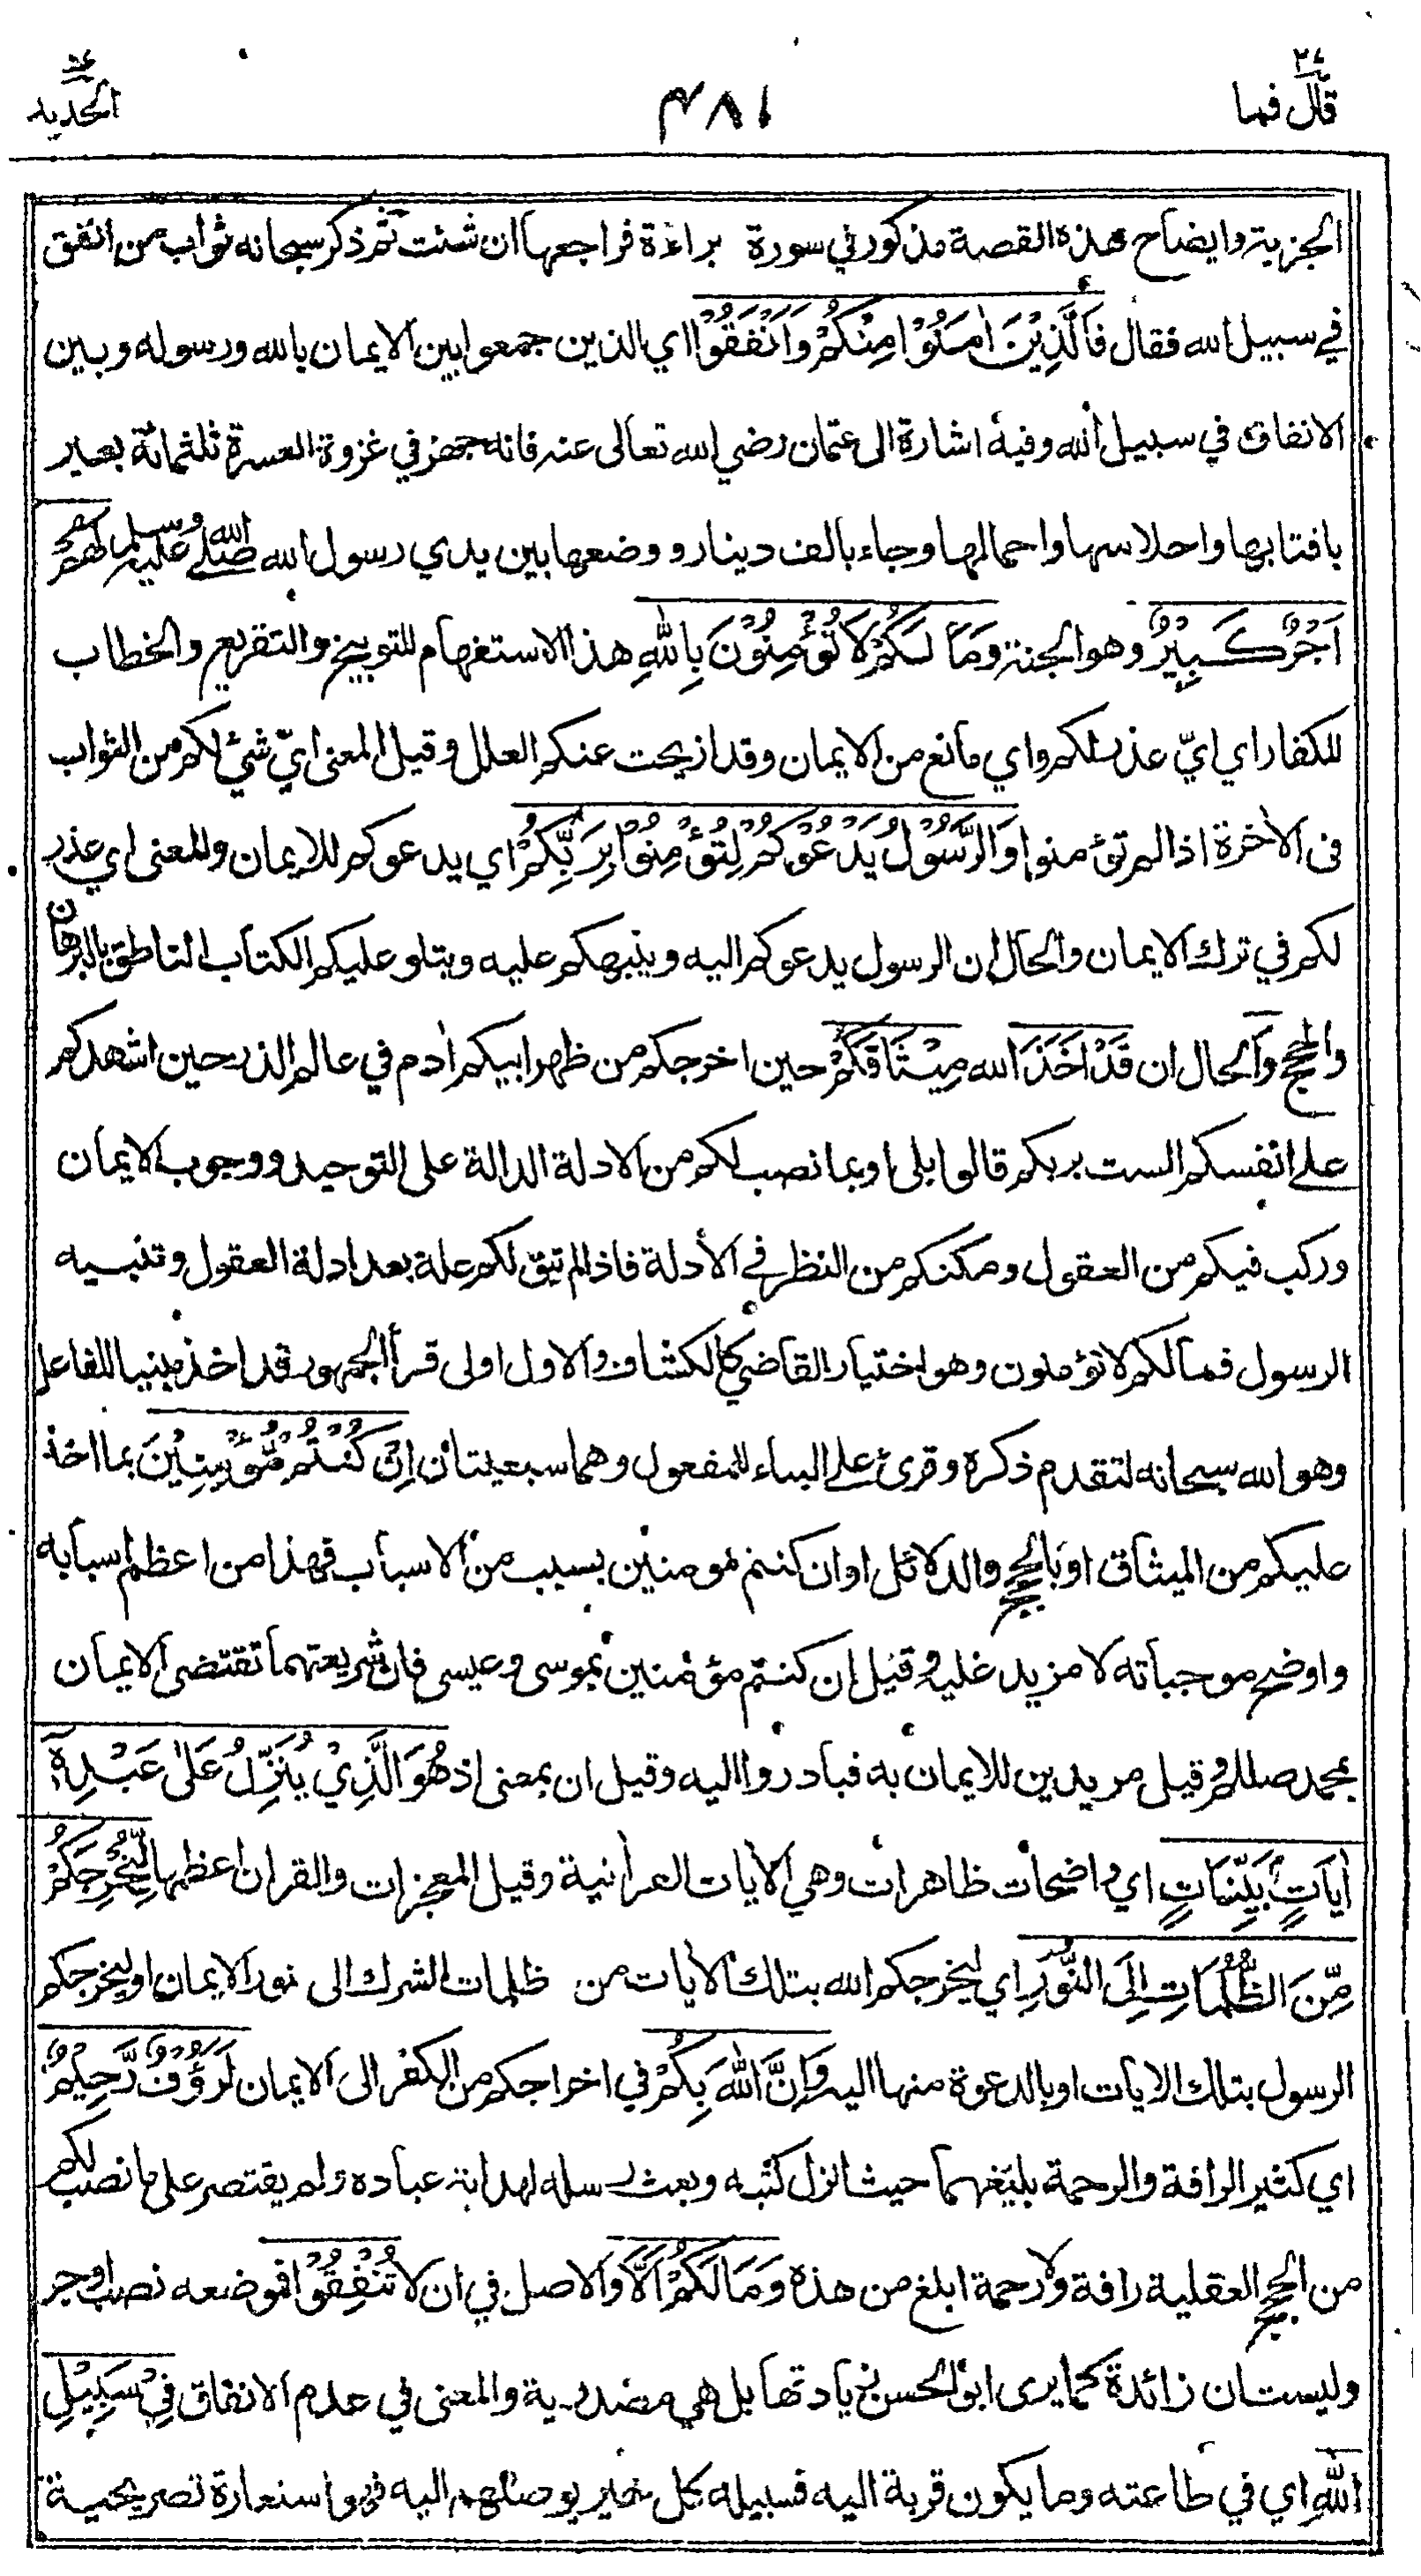 قال فما
٢٧
٤٨١
الحديد
٥٧
الجزية وايضاح هذه القصة مذكور في سورة براءة فراجعها ان شئت ثم ذكر سبحانه ثواب من انفق
في سبيل الله فقال فَالَّذِيْنَ اٰمَنُوْا مِنْكُمْ وَاَنْفَقُوْا اي الذين جمعوا بين الايمان بالله ورسوله وبين
الانفاق في سبيل الله وفيه اشارة الى عثمان رضي الله تعالى عنه فانه جهز في غزوة العسرة ثلثمائة بعير
باقتابها واحلاسها واحمالها وجاء بالف دينار ووضعها بين يدي رسول الله صلى الله عليه وسلم لَهُمْ
اَجْرٌ كَبِيْرٌ وهو الجنة وَمَا لَكُمْ لَا تُؤْمِنُوْنَ بِاللّٰهِ هذا الاستفهام للتوبيخ والتقريع والخطاب
للكفار اي ايّ عذر لكم واي مانع من الايمان وقد ازيحت عنكم العلل وقيل المعنى ايّ شئ لكم من الثواب
في الاٰخرة اذا لم تؤمنوا وَالرَّسُوْلُ يَدْعُوْكُمْ لِتُؤْمِنُوْا بِرَبِّكُمْ اي يدعوكم للايمان والمعنى اي عذر
لكم في ترك الايمان والحال ان الرسول يدعوكم اليه وينبهكم عليه ويتلو عليكم الكتاب الناطق بالبرهان
والحجج وَالحال ان قَدْ اَخَذَ الله مِيْثَاقَكُمْ حين اخرجكم من ظهر ابيكم اٰدم في عالم الذر حين اشهدكم
على انفسكم الست بربكم قالوا بلى او بما نصب لكم من الادلة الدالة على التوحيد ووجوب الايمان
وركب فيكم من العقول ومكنكم من النظر في الأدلة فاذا لم تبق لكم علة بعد ادلة العقول وتنبيه
الرسول فما لكم لا تؤمنون وهو اختيار القاضي كالكشاف والاول اولى قرأ الجمهور قد اخذ مبنيا للفاعل
وهو الله سبحانه لتقدم ذكره وقرئ على البناء للمفعول وهما سبعيتان اِنْ كُنْتُمْ مُّؤْمِنِيْنَ بما اخذ
عليكم من الميثاق او بالحجج والدلائل او ان كنتم مؤمنين بسبب من الاسباب فهذا من اعظم اسبابه
واوضح موجباته لا مزيد عليه وقيل ان كنتم مؤمنين بموسى وعيسى فان شريعتهما تقتضى الايمان
بمحمد صللم وقيل مريدين للايمان به فبادروا اليه وقيل ان بمعنى اذ هُوَ الَّذِيْ يُنَزِّلُ عَلٰى عَبْدِهٖٓ
اٰيَاتٍ بَيِّنَاتٍ اي واضحات ظاهرات وهي الاٰيات القراٰنية وقيل المعجزات والقراٰن اعظمها لِّيُخْرِجَكُمْ
مِّنَ الظُّلُمَاتِ اِلَى النُّوْرِ اي ليخرجكم الله بتلك الاٰيات من ظلمات الشرك الى نور الايمان او ليخرجكم
الرسول بتلك الاٰيات او بالدعوة منها اليه وَاِنَّ اللّٰهَ بِكُمْ في اخراجكم من الكفر الى الايمان لَرَؤُفٌ رَّحِيْمٌ
اي كثير الرافة والرحمة بليغهما حيث انزل كتبه وبعث رسله لهداية عباده ولم يقتصر على ما نصب لكم
من الحجج العقلية رافة ولا رحمة ابلغ من هذه وَمَا لَكُمْ اَلَّا والاصل في ان لا تُنْفِقُوْا فموضعه نصب او جر
وليست ان زائدة كما يرى ابو الحسن زيادتها بل هي مصدرية والمعنى في عدم الانفاق فِيْ سَبِيْلِ
اللّٰهِ اي في طاعته وما يكون قربة اليه فسبيله كل خير يوصلهم اليه فهو استعارة تصريحية